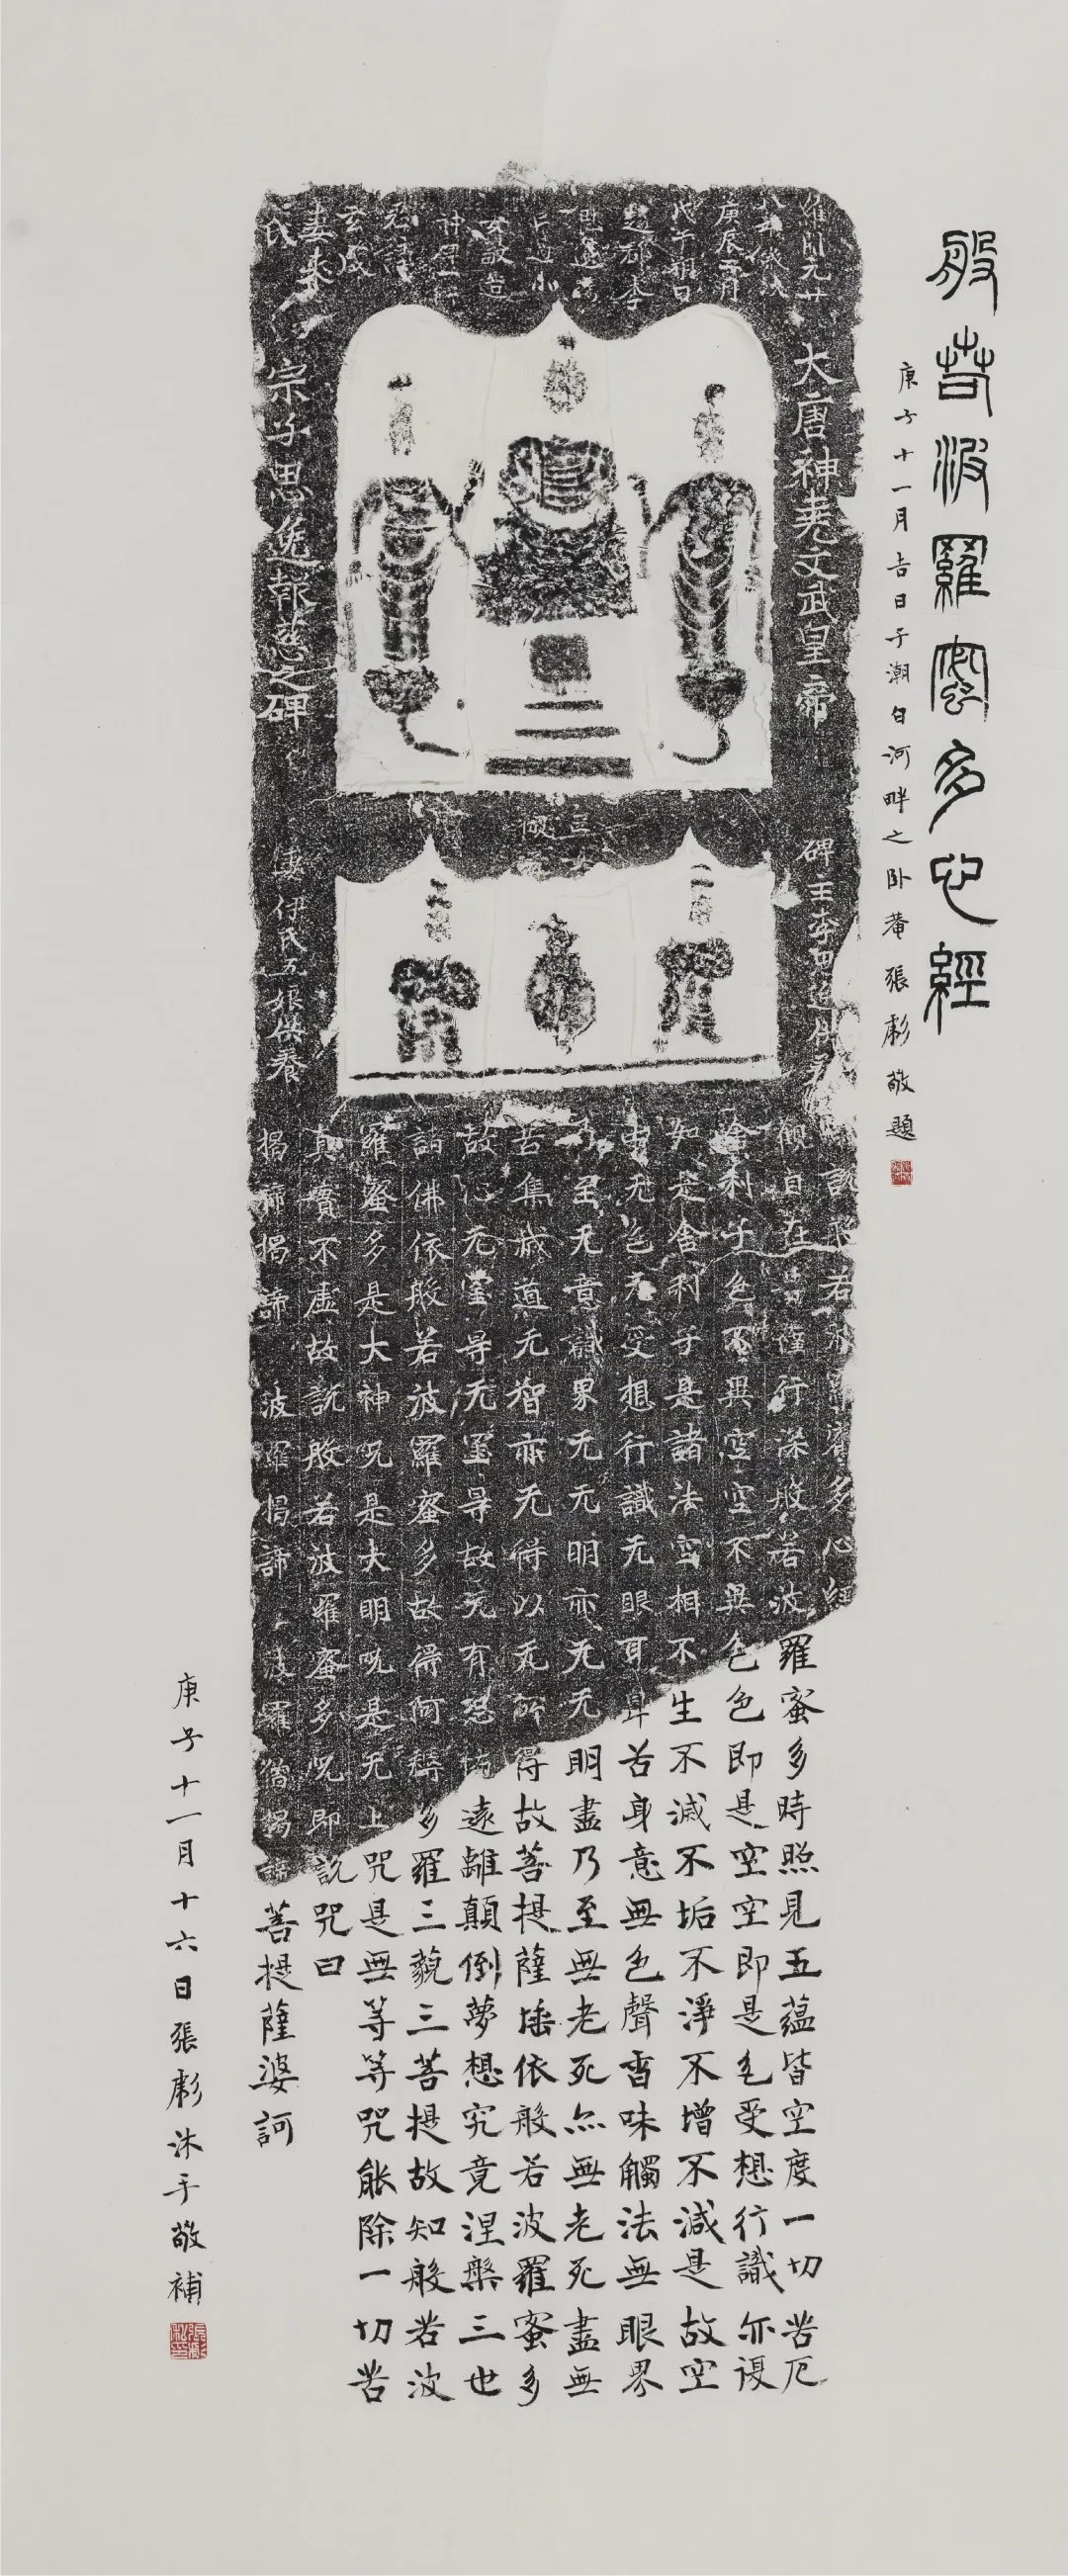 般若波羅蜜多心經
庚子十一月吉日于潮白河畔之卧菴張彪敬題
維開元廿
八年歲次
庚辰
戊午朔日
趙郡李
敬造
神尭
玄成
妻
氏
大唐神尭文武皇帝
碑主李
宗子思
報慈之碑
妻伊氏五娘供養
說般若波羅蜜多心經
觀自在菩薩行深般若波羅蜜多時照見五蘊皆空度一切苦厄
舍利子色不異空空不異色色即是空空即是色受想行識亦復
如是舍利子是諸法空相不生不滅不垢不淨不增不減是故空
中无色无受想行識无眼耳鼻舌身意無色聲香味觸法無眼界
乃至无意識界无无明亦无无无明盡乃至無老死亦無老死盡無
苦集滅道无智亦无得以无所得故菩提薩埵依般若波羅蜜多
故心无罣导无罣导故无有恐怖遠離顛倒夢想究竟涅槃三世
諸佛依般若波羅蜜多故得阿耨多羅三藐三菩提故知般若波
羅蜜多是大神咒是大明咒是无上咒是無等等咒能除一切苦
真實不虛故說般若波羅蜜多咒即說咒曰
揭諦揭諦 波羅揭諦 波羅僧揭諦菩提薩婆訶
庚子十一月十六日張彪沐手敬補